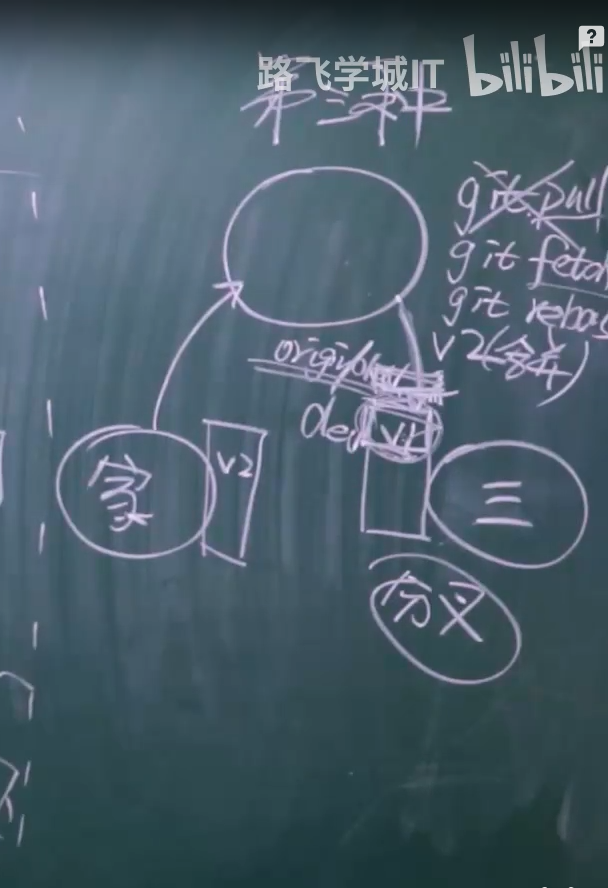 路飞学城IT bilibili
?
第三种
git pull
git fetch
git rebas
v2(合并)
origin/
dev v1
v2
家
三
分叉